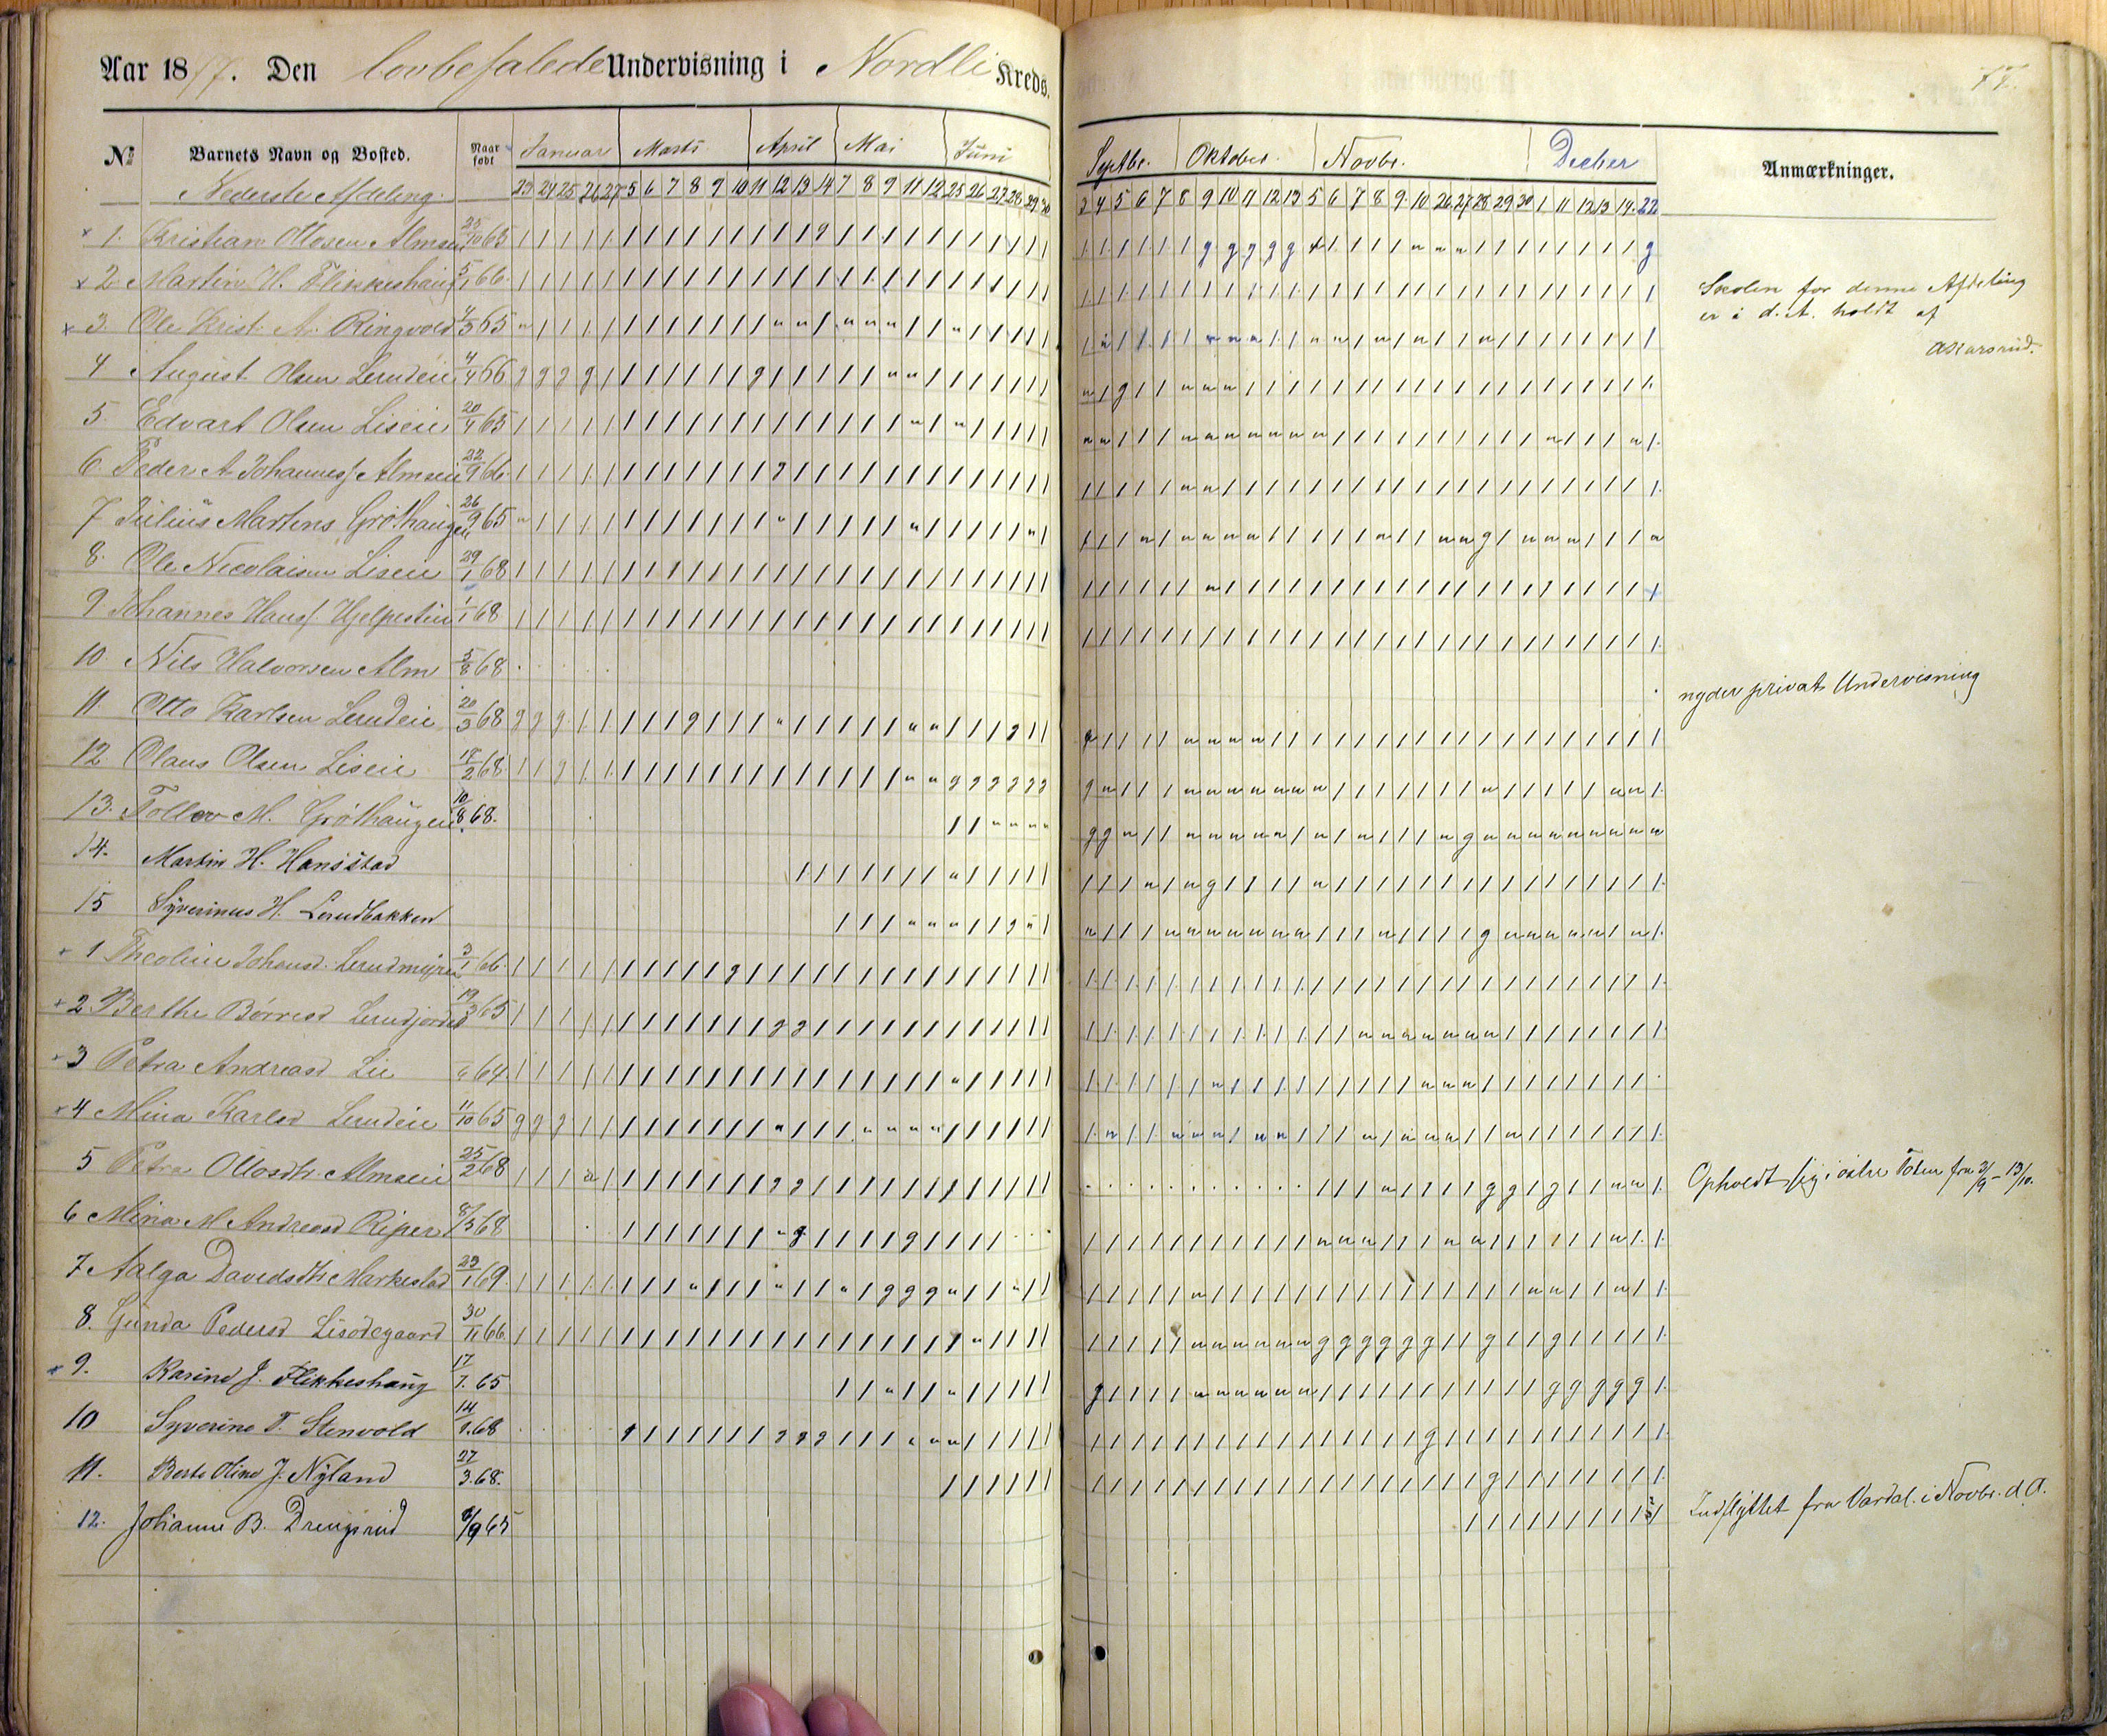 Aar 1877. Den lovbefalede Undervisning i Nordli Kreds.
77.
No Barnets Navn og Bosted. Naar født Januar Marts April Mai Juni
Septbr. Oktober Novbr. Decber Anmærkninger.
Nederste Afdeling. 23 24 25 26 27 5 6 7 8 9 10 11 12 13 14 7 8 9 11 12 25 26 27 28 29 30
3 4 5 6 7 8 9 10 11 12 13 5 6 7 8 9 10 26 27 28 29 30 1 11 12 13 14 22
1. Kristian Ottosen Almseie 25/10 63
2 Martin H. Flikkeshaug 5/1 66.
3. Ole Krist. A. Ringvold 4/3 65
4 August Olsen Lerudeie 4/4 66
5. Edvart Olsen Liseie 20/4 65
6. Peder A. Johannesf. Almseie 22/9 66.
7 Julius Martins. Grøthaugen 26/9 65
8. Ole Nicolaisen Liseie 29/1 68
9 Johannes Hansf. Hjelpestein 1/1 68
10. Nils Halvorsen Alm 5/8 68
11. Otto Karlsen Lerudeie 20/3 68
12 Olaus Olsen Liseie 18/2 68
13. Tollov M. Grøthaugen 10/8 68.
14. Martin H. Hansstad
15 Syverinus H. Lerudbakken
1 Theoline Johansd. Lerudmyren 3/1 66.
2. Berthe Børresd Lerudjordet 19/3 65
3 Petra Andreasd Lie 64.
4 Mina Karlsd Lerudeie 11/10 65
5 Petra Ottosdtr. Almseie 25/2 68
6 Mina M. Andreasd Riper 8/5 68
7 Aalga Davidsdtr. Markestad 29/1 69.
8. Gunda Pedersd Lisødegaard 30/11 66
9. Karine J. Flikkeshaug 17/7. 65
10 Syverine T. Stenvold 14/9.68
11. Berte Oline J. Nyland 27/3.68.
12. Johanne B. Drengsrud 8/9 65
Skolen for denne Afdeling
er i d. A. holdt af
AKarsrud.
nyder privat Undervisning
Opholdt sig i østre Toten fra 3/9 – 13/10.
Indflyttet fra Vardal i Novbr. d. A.